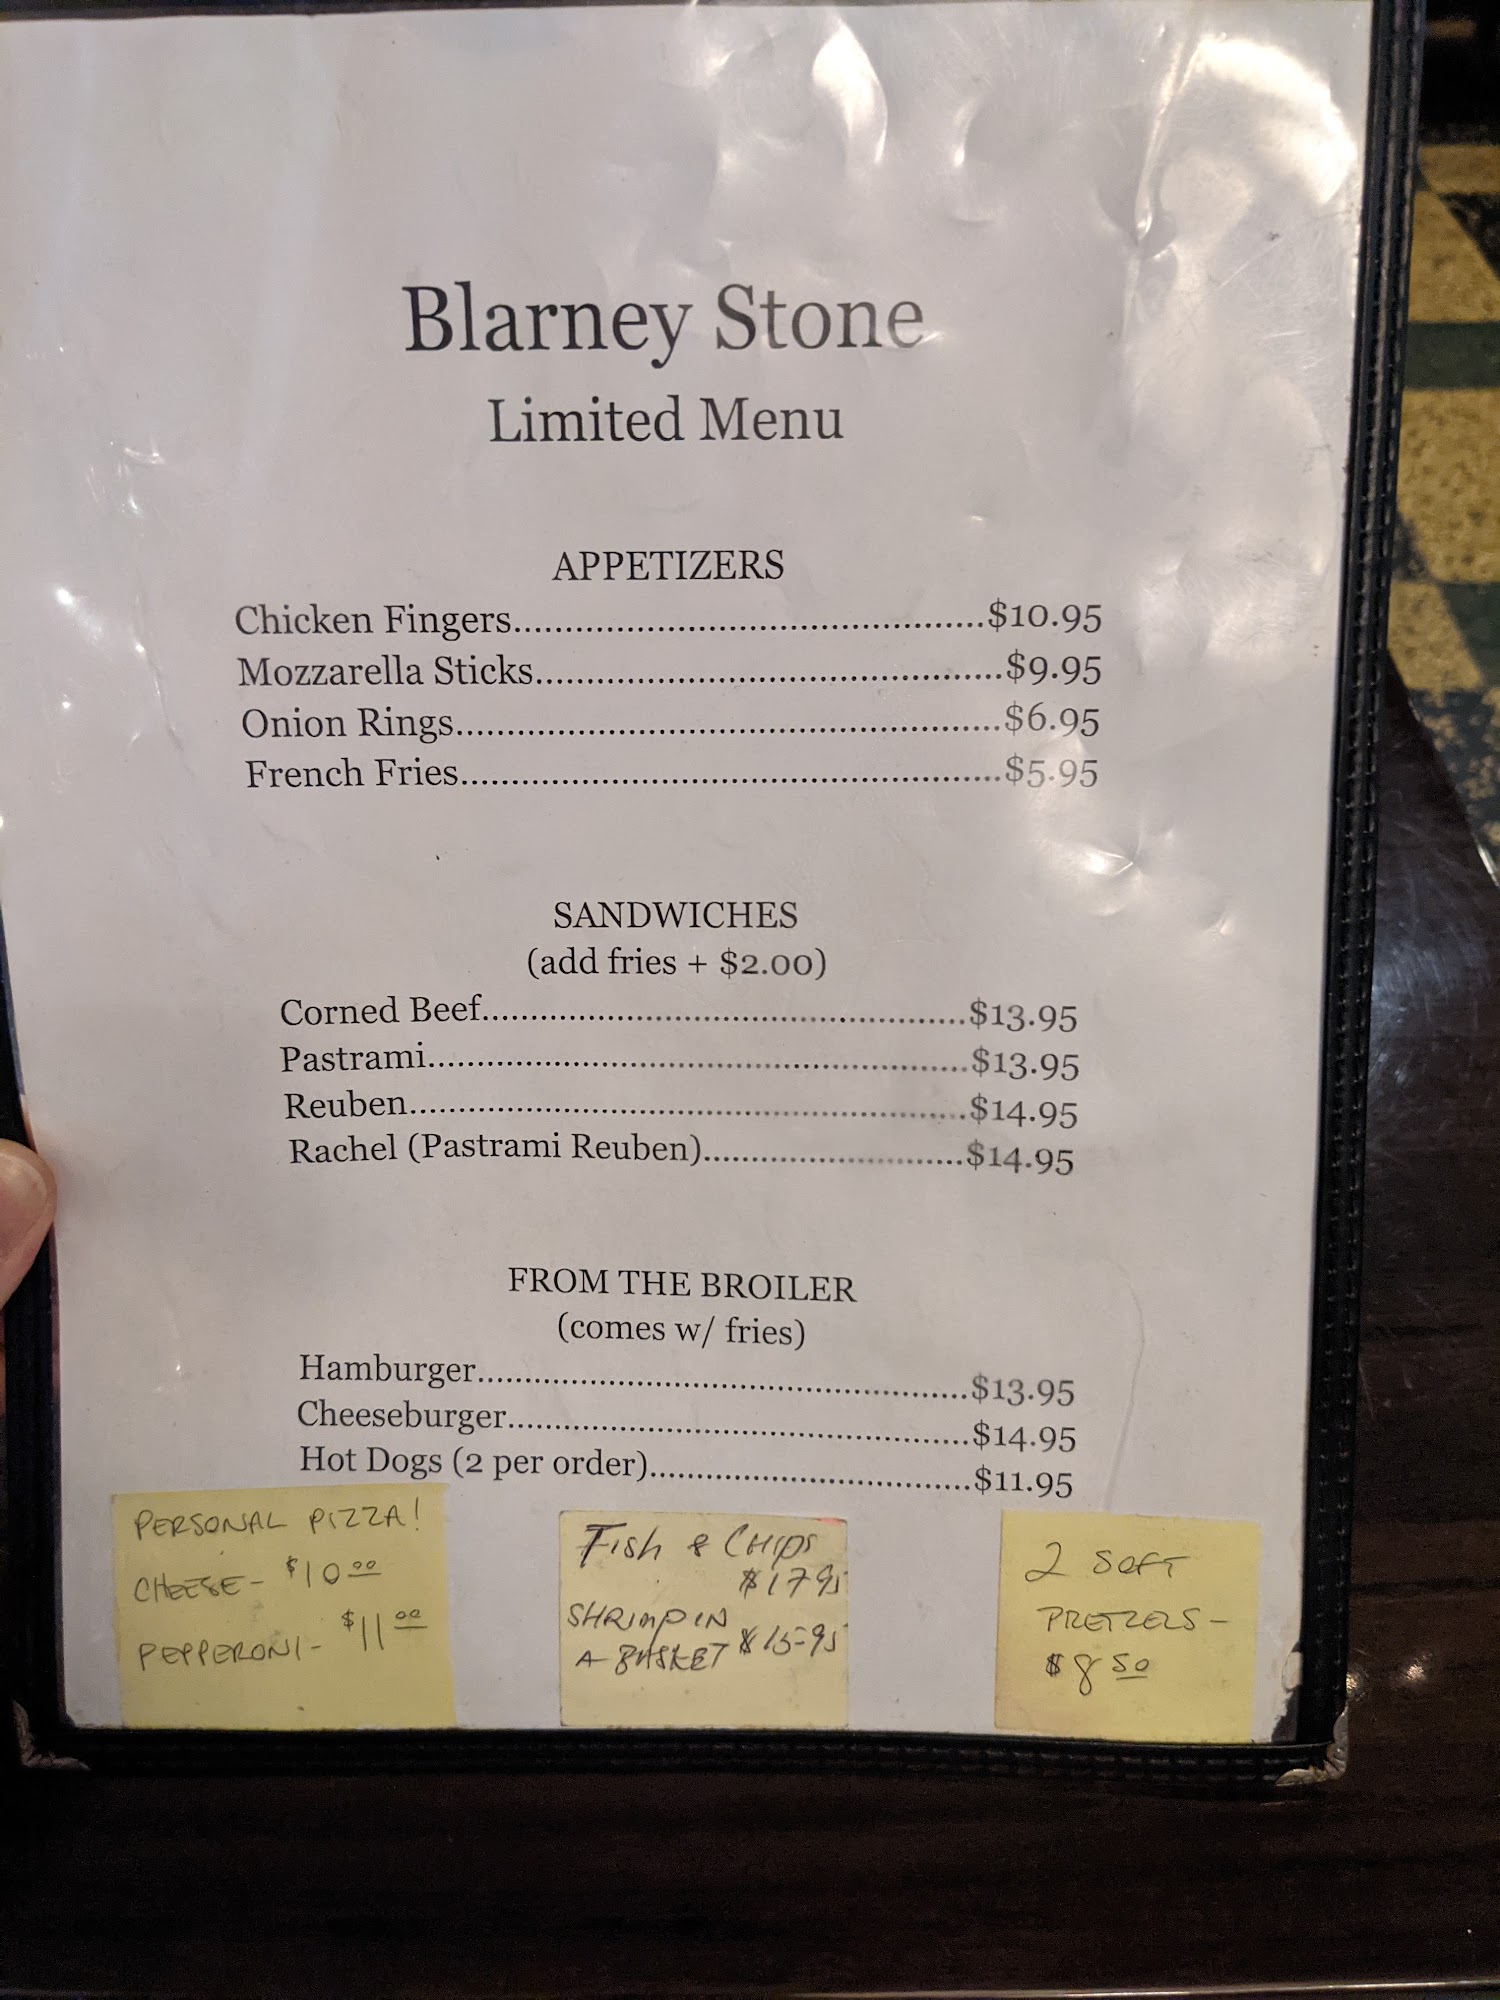 Blarney Stone
Limited Menu
APPETIZERS
Chicken Fingers..............................................$10.95
Mozzarella Sticks.............................................$9.95
Onion Rings.....................................................$6.95
French Fries....................................................$5.95
SANDWICHES
(add fries + $2.00)
Corned Beef...............................................$13.95
Pastrami....................................................$13.95
Reuben......................................................$14.95
Rachel (Pastrami Reuben).........................$14.95
FROM THE BROILER
(comes w/ fries)
Hamburger................................................$13.95
Cheeseburger.............................................$14.95
Hot Dogs (2 per order)...............................$11.95
PERSONAL PIZZA!
CHEESE- $10 00
PEPPERONI- $11 00
Fish & CHIPS
$17 95
SHRIMP IN
A BASKET $15-95
2 SOFT
PRETZELS-
$8 50